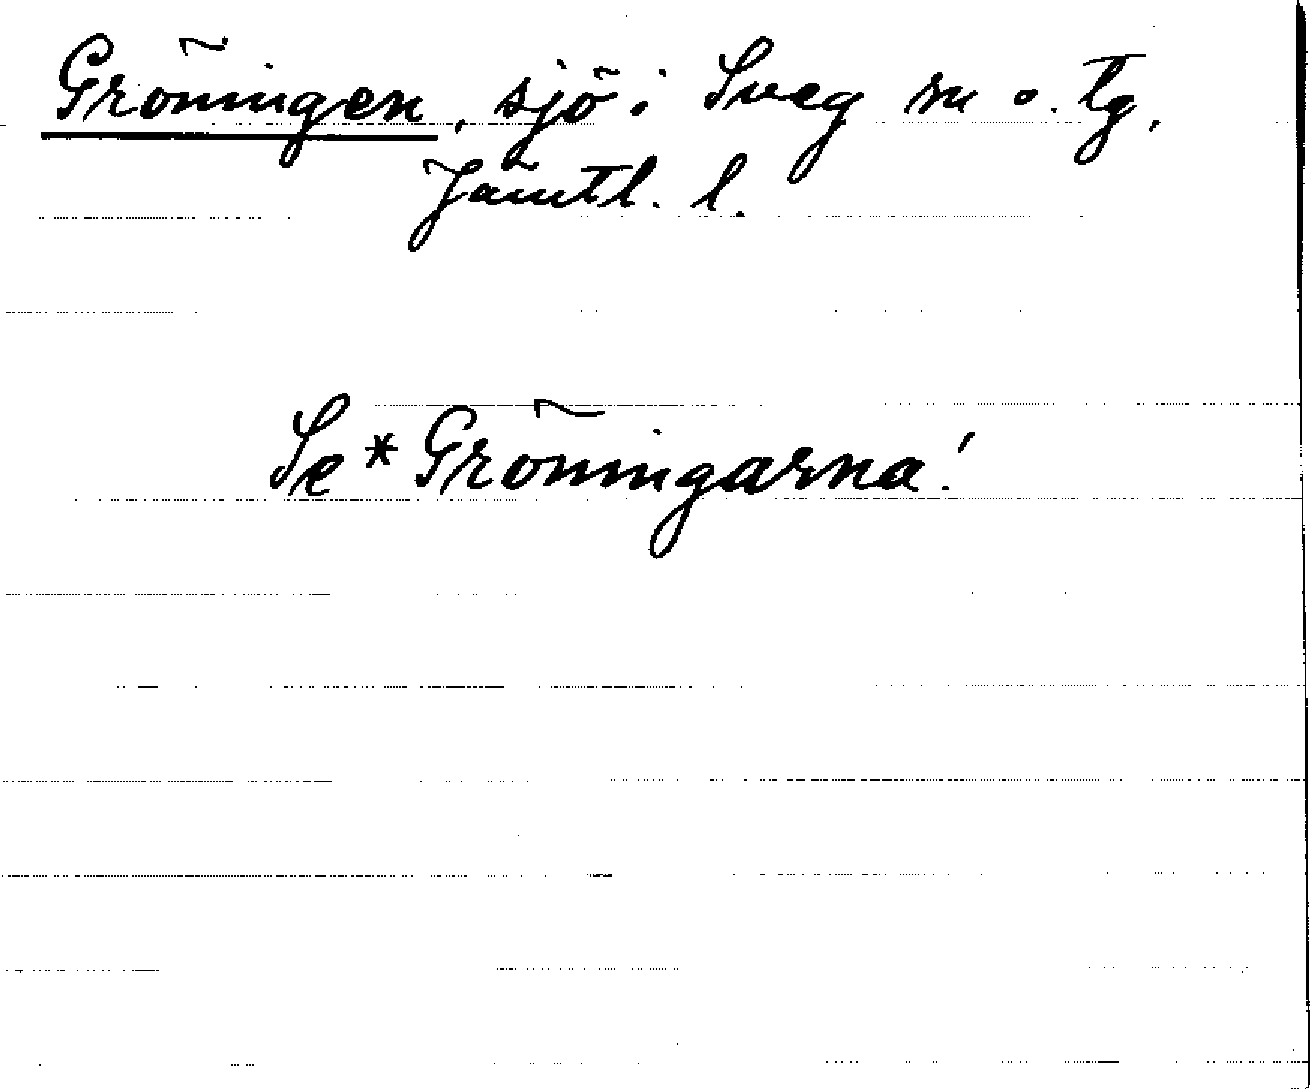 Gröningen, sjö i Sveg sn o. tg,
Jämtl. l.
Se *Gröningarna!